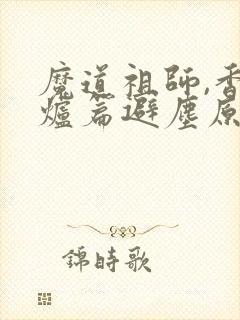 魔道祖師,香
爐篇避塵原
錦時歌